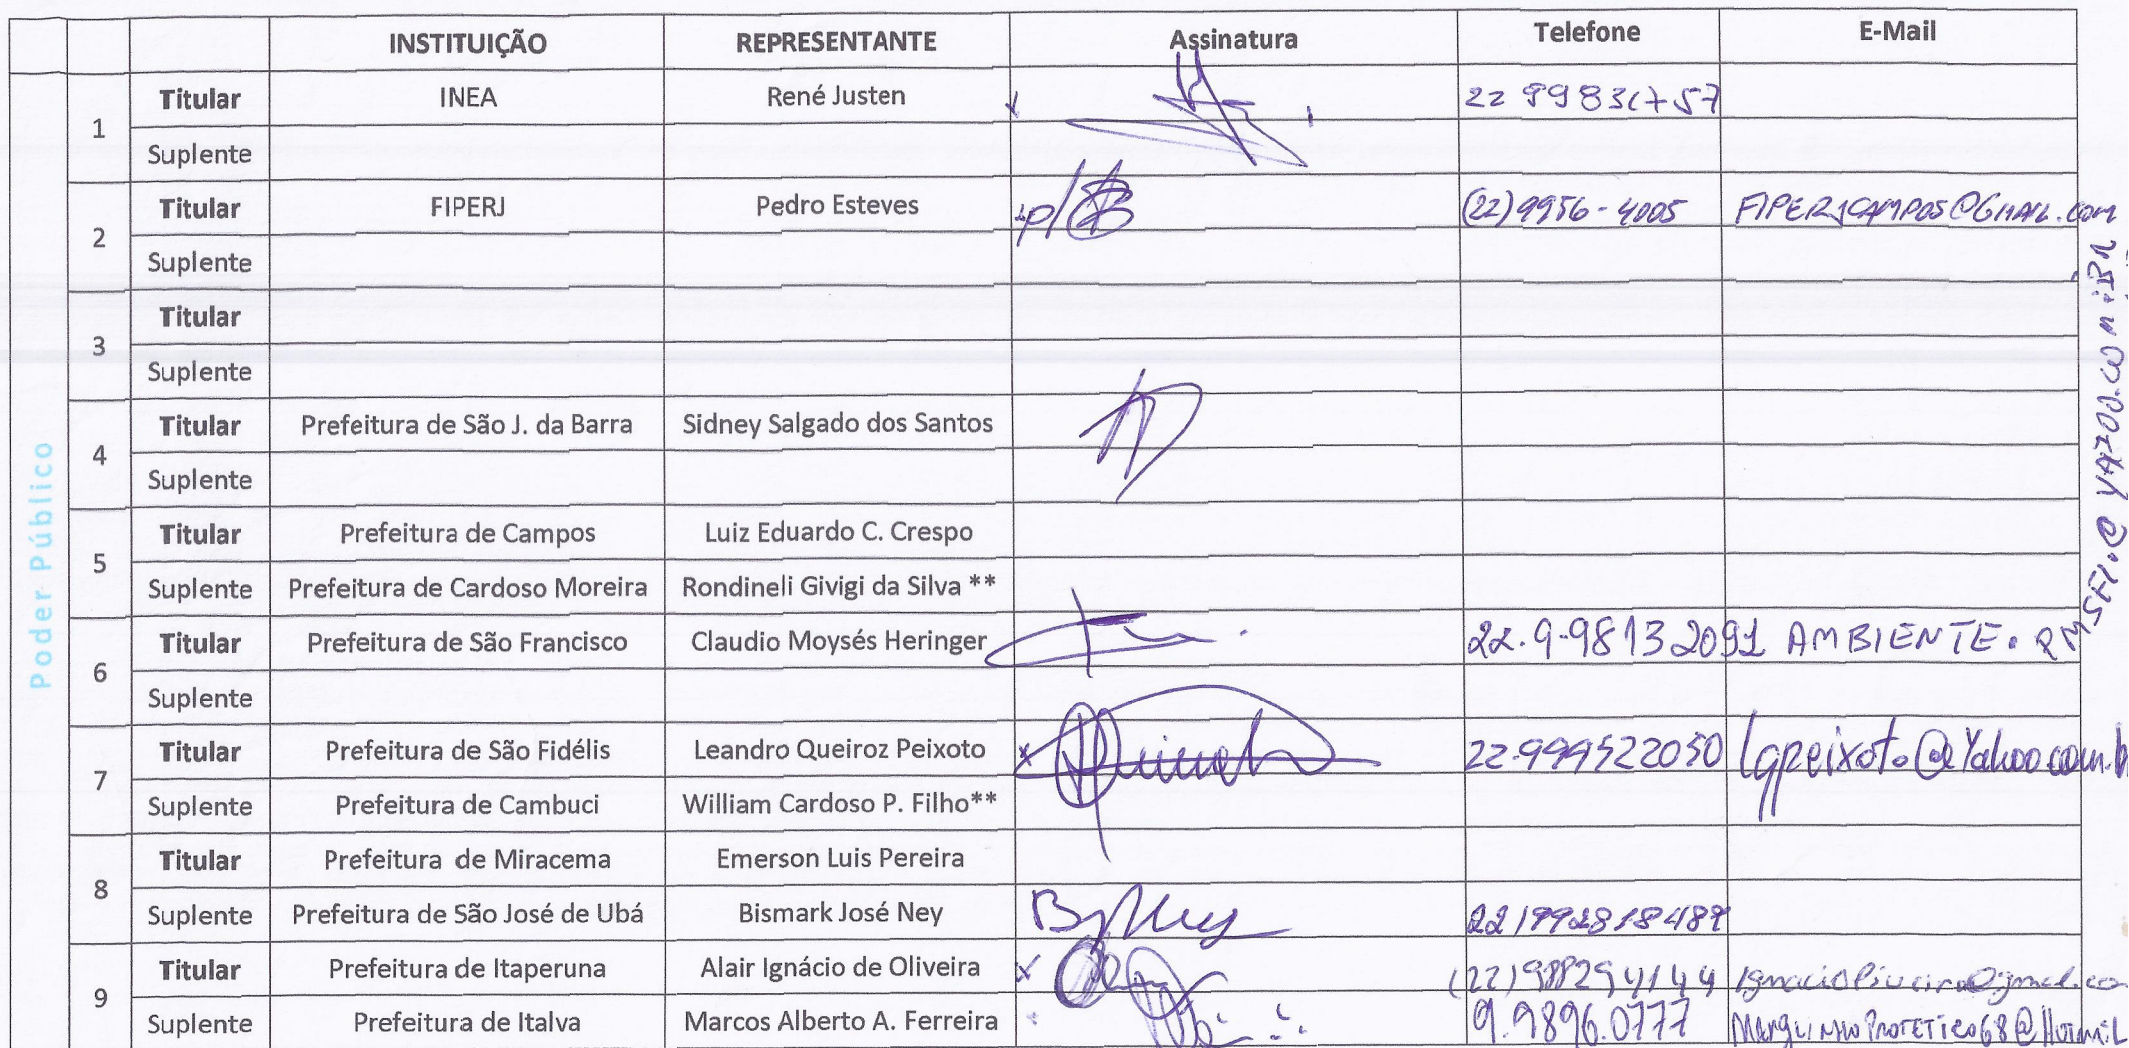 INSTITUIÇÃO REPRESENTANTE Assinatura Telefone E-Mail
Poder Público
1 Titular INEA René Justen
Suplente
2 Titular FIPERJ Pedro Esteves p/ (22) 9956-4005 FIPERJCAMPOS@GMAIL.com
Suplente
3 Titular
Suplente
4 Titular Prefeitura de São J. da Barra Sidney Salgado dos Santos
Suplente
5 Titular Prefeitura de Campos Luiz Eduardo C. Crespo
Suplente Prefeitura de Cardoso Moreira Rondineli Givigi da Silva **
6 Titular Prefeitura de São Francisco Claudio Moysés Heringer 22.9-98132091 AMBIENTE.PMSFI.@YAHOO.COM.BR
Suplente
7 Titular Prefeitura de São Fidélis Leandro Queiroz Peixoto x 22.999522050 lqpeixoto@Yahoo.com.b
Suplente Prefeitura de Cambuci William Cardoso P. Filho**
8 Titular Prefeitura de Miracema Emerson Luis Pereira
Suplente Prefeitura de São José de Ubá Bismark José Ney
9 Titular Prefeitura de Itaperuna Alair Ignácio de Oliveira x
Suplente Prefeitura de Italva Marcos Alberto A. Ferreira 9.9896.0777